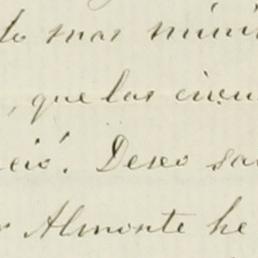 lo mas míni
, que las circu
ició. Deseo sa
r Almonte he